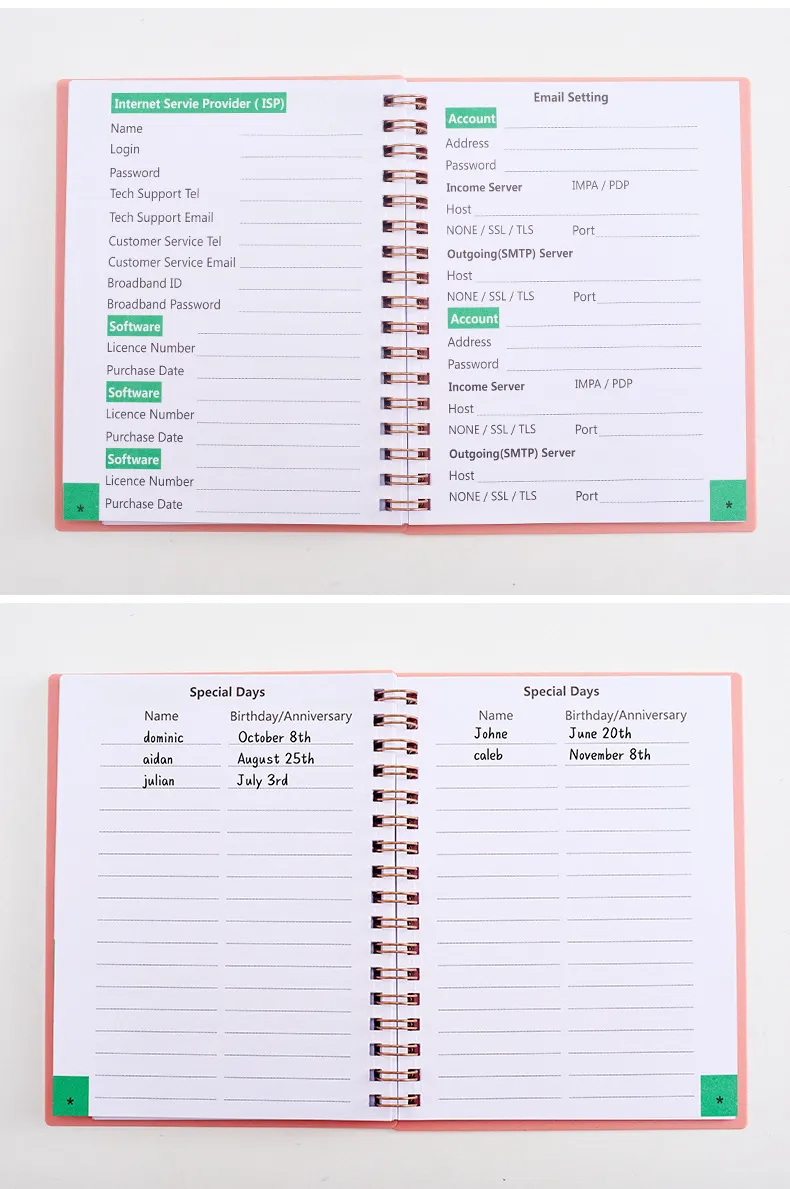 Internet Servie Provider ( ISP)
Name
Login
Password
Tech Support Tel
Tech Support Email
Customer Service Tel
Customer Service Email
Broadband ID
Broadband Password
Software
Licence Number
Purchase Date
Software
Licence Number
Purchase Date
Software
Licence Number
Purchase Date
*
Email Setting
Account
Address
Password
Income Server IMPA / PDP
Host
NONE / SSL / TLS Port
Outgoing(SMTP) Server
Host
NONE / SSL / TLS Port
Account
Address
Password
Income Server IMPA / PDP
Host
NONE / SSL / TLS Port
Outgoing(SMTP) Server
Host
NONE / SSL / TLS Port
*
Special Days
Name Birthday/Anniversary
dominic October 8th
aidan August 25th
julian July 3rd
*
Special Days
Name Birthday/Anniversary
Johne June 20th
caleb November 8th
*